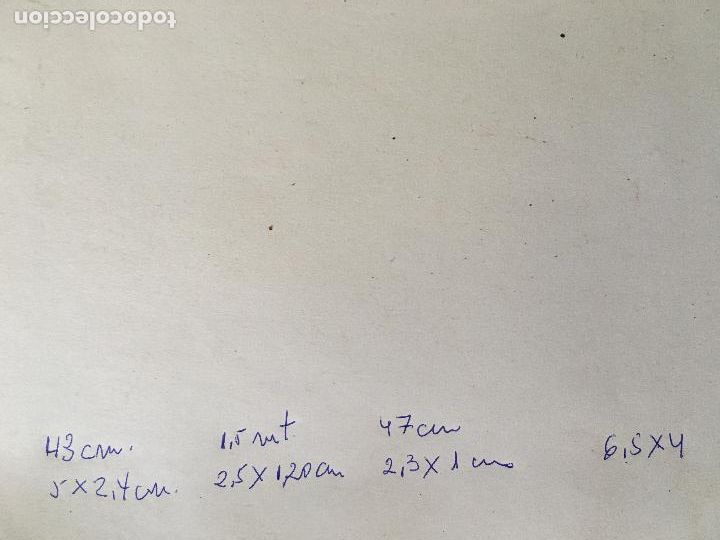 todocoleccion
43 cm. 1,5 mt 47 cm
5 x 2,4 cm. 2,5 x 1,20 cm 2,3 x 1 cm 6,5 x 4